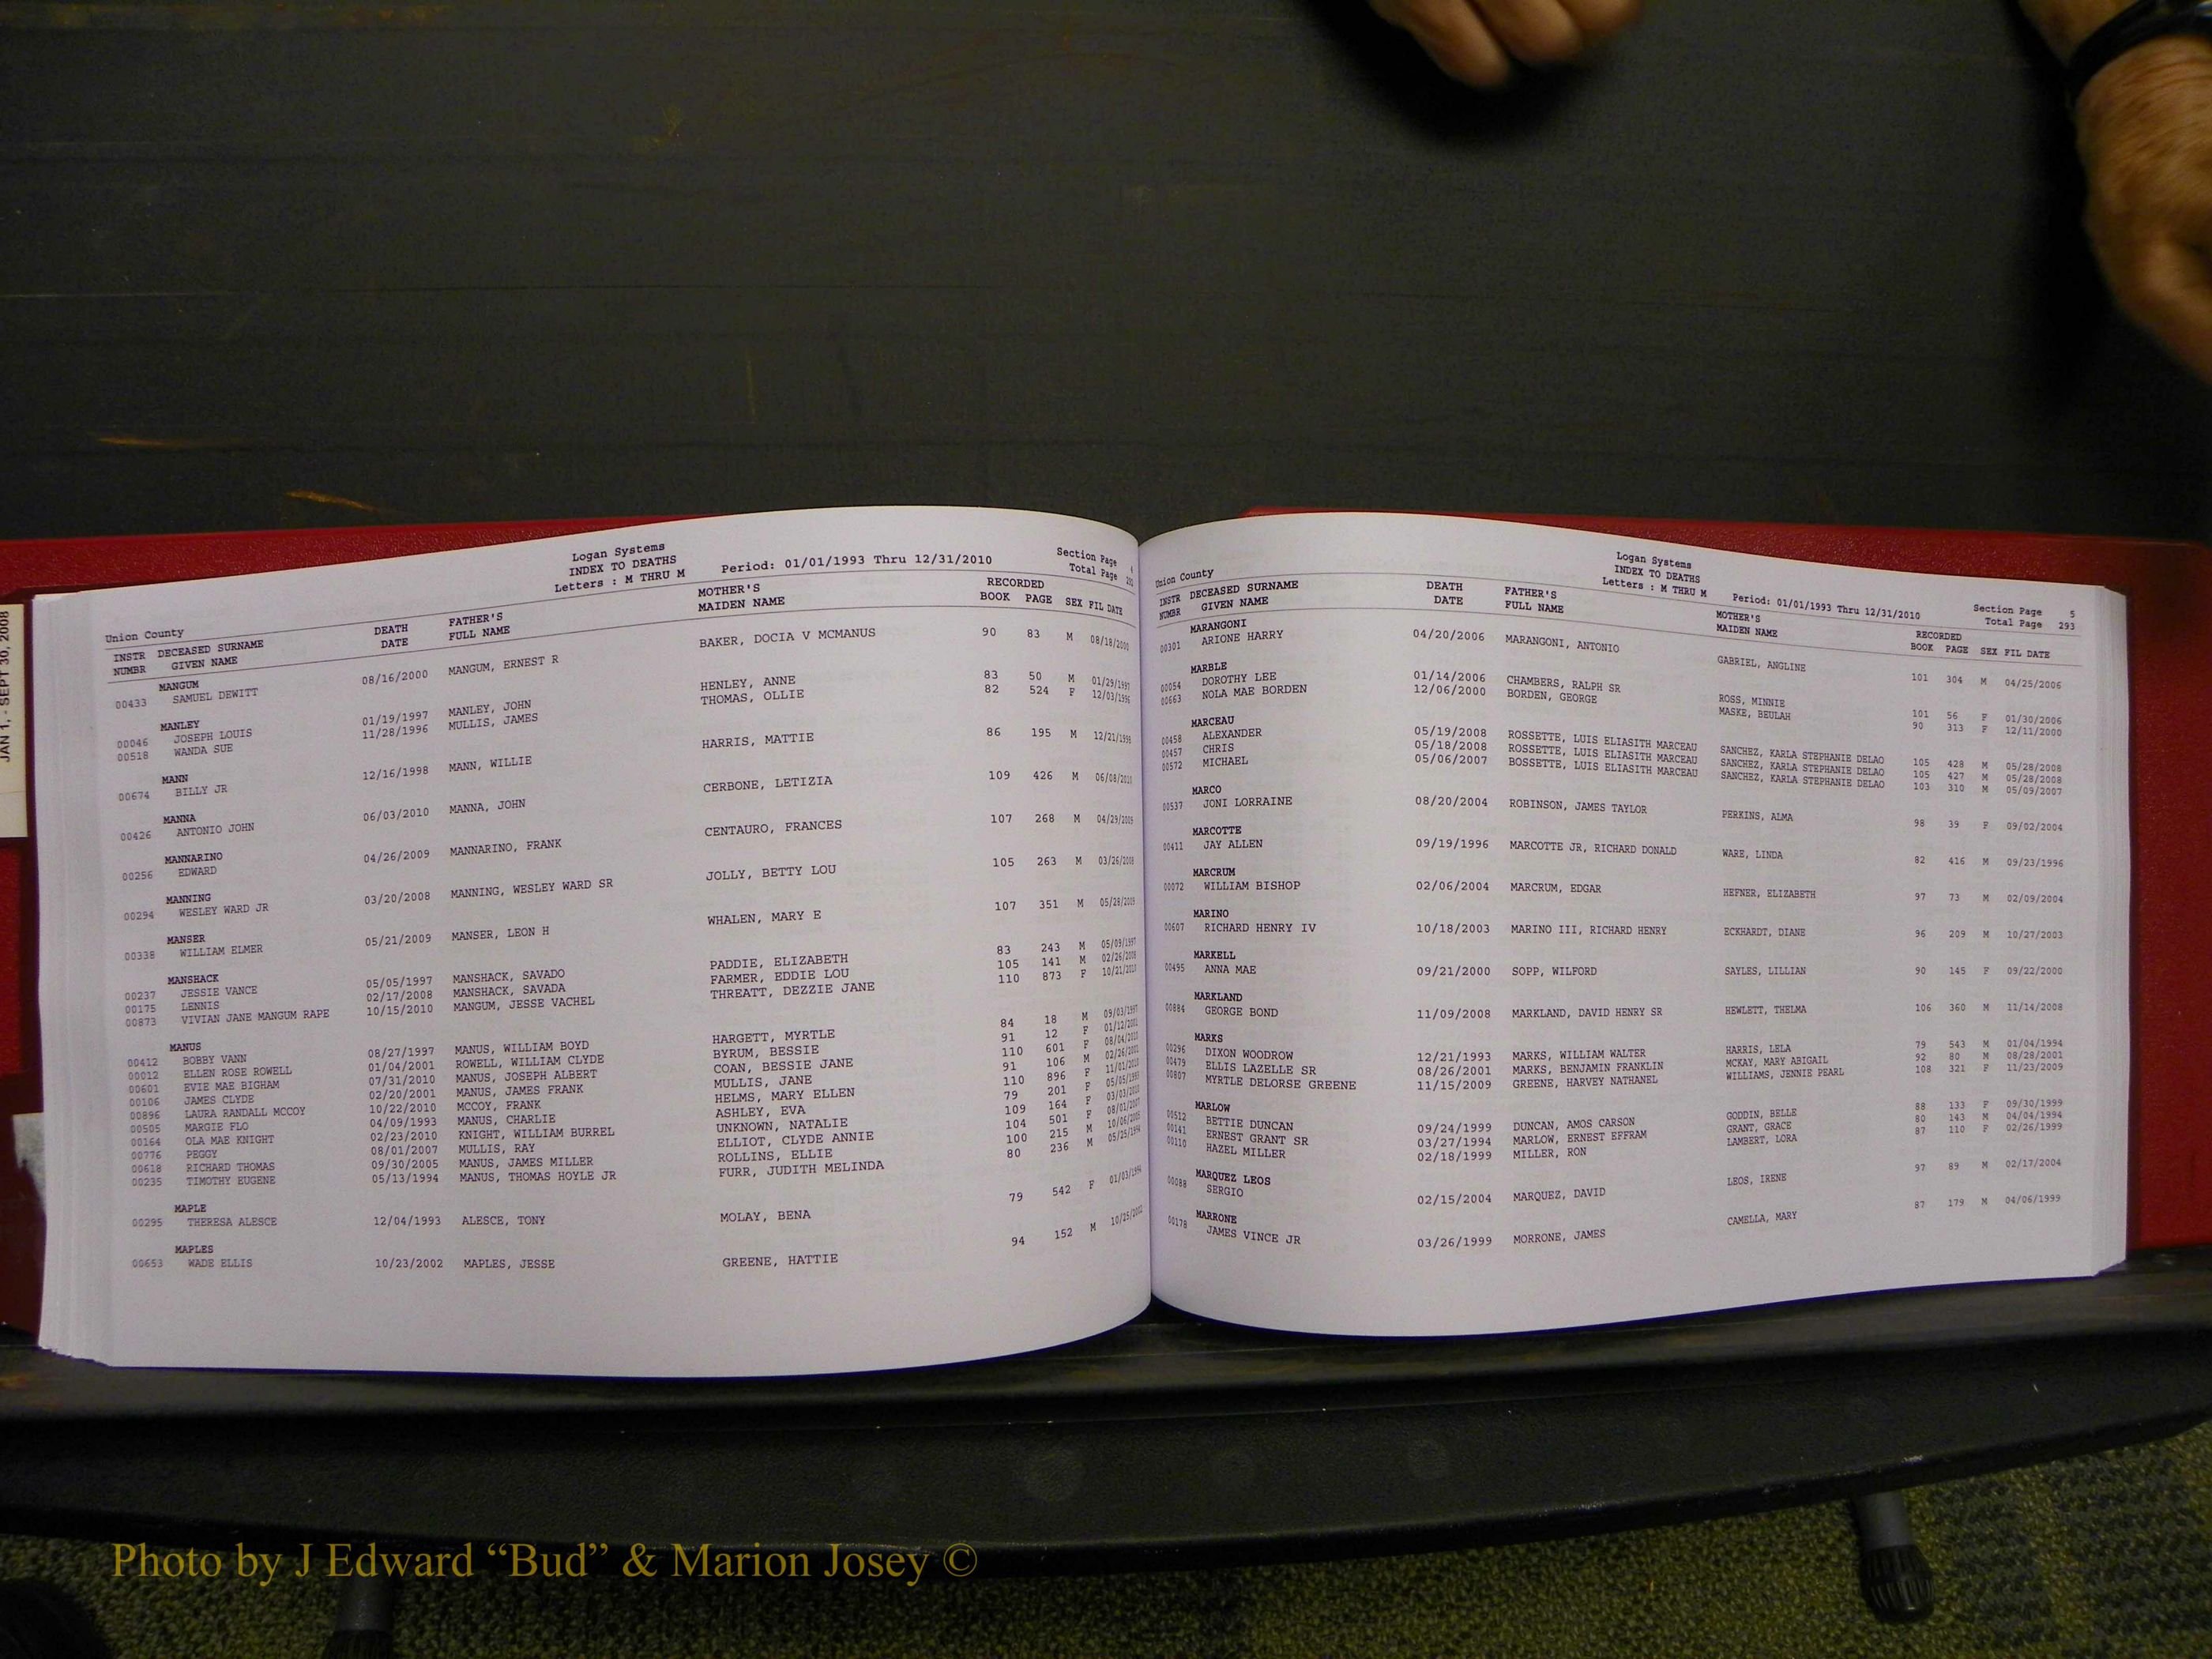 JAN 1, - SEPT 30, 2008
Logan Systems
INDEX TO DEATHS
Letters : M THRU M Period: 01/01/1993 Thru 12/31/2010
Section Page
Total Page
Union County
INSTR DECEASED SURNAME DEATH FATHER'S MOTHER'S RECORDED
NUMBR GIVEN NAME DATE FULL NAME MAIDEN NAME BOOK PAGE SEX FIL DATE
MANGUM
00433 SAMUEL DEWITT 08/16/2000 MANGUM, ERNEST R BAKER, DOCIA V MCMANUS 90 83 M 08/18/2000
MANLEY
00046 JOSEPH LOUIS 01/19/1997 MANLEY, JOHN HENLEY, ANNE 83 50 M 01/29/1997
00518 WANDA SUE 11/28/1996 MULLIS, JAMES THOMAS, OLLIE 82 524 F 12/03/1996
MANN
00674 BILLY JR 12/16/1998 MANN, WILLIE HARRIS, MATTIE 86 195 M 12/21/1998
MANNA
00426 ANTONIO JOHN 06/03/2010 MANNA, JOHN CERBONE, LETIZIA 109 426 M 06/08/2010
MANNARINO
00256 EDWARD 04/26/2009 MANNARINO, FRANK CENTAURO, FRANCES 107 268 M 04/29/2009
MANNING
00294 WESLEY WARD JR 03/20/2008 MANNING, WESLEY WARD SR JOLLY, BETTY LOU 105 263 M 03/26/2008
MANSER
00338 WILLIAM ELMER 05/21/2009 MANSER, LEON H WHALEN, MARY E 107 351 M 05/28/2009
MANSHACK
00237 JESSIE VANCE 05/05/1997 MANSHACK, SAVADO PADDIE, ELIZABETH 83 243 M 05/09/1997
00175 LENNIS 02/17/2008 MANSHACK, SAVADA FARMER, EDDIE LOU 105 141 M 02/26/2008
00873 VIVIAN JANE MANGUM RAPE 10/15/2010 MANGUM, JESSE VACHEL THREATT, DEZZIE JANE 110 873 F 10/21/2010
MANUS
00412 BOBBY VANN 08/27/1997 MANUS, WILLIAM BOYD HARGETT, MYRTLE 84 18 M 09/03/1997
00012 ELLEN ROSE ROWELL 01/04/2001 ROWELL, WILLIAM CLYDE BYRUM, BESSIE 91 12 F 01/12/2001
00601 EVIE MAE BIGHAM 07/31/2010 MANUS, JOSEPH ALBERT COAN, BESSIE JANE 110 601 F 08/04/2010
00106 JAMES CLYDE 02/20/2001 MANUS, JAMES FRANK MULLIS, JANE 91 106 M 02/26/2001
00896 LAURA RANDALL MCCOY 10/22/2010 MCCOY, FRANK HELMS, MARY ELLEN 110 896 F 11/01/2010
00505 MARGIE FLO 04/09/1993 MANUS, CHARLIE ASHLEY, EVA 79 201 F 05/05/1993
00164 OLA MAE KNIGHT 02/23/2010 KNIGHT, WILLIAM BURREL UNKNOWN, NATALIE 109 164 F 03/03/2010
00776 PEGGY 08/01/2007 MULLIS, RAY ELLIOT, CLYDE ANNIE 104 501 F 08/01/2007
00618 RICHARD THOMAS 09/30/2005 MANUS, JAMES MILLER ROLLINS, ELLIE 100 215 M 10/06/2005
00235 TIMOTHY EUGENE 05/13/1994 MANUS, THOMAS HOYLE JR FURR, JUDITH MELINDA 80 236 M 05/25/1994
MAPLE
00295 THERESA ALESCE 12/04/1993 ALESCE, TONY MOLAY, BENA 79 542 F 01/03/1994
MAPLES
00653 WADE ELLIS 10/23/2002 MAPLES, JESSE GREENE, HATTIE 94 152 M 10/25/2002
Logan Systems
INDEX TO DEATHS
Letters : M THRU M Period: 01/01/1993 Thru 12/31/2010
Section Page 5
Total Page 293
Union County
INSTR DECEASED SURNAME DEATH FATHER'S MOTHER'S RECORDED
NUMBR GIVEN NAME DATE FULL NAME MAIDEN NAME BOOK PAGE SEX FIL DATE
MARANGONI
00301 ARIONE HARRY 04/20/2006 MARANGONI, ANTONIO GABRIEL, ANGLINE 101 304 M 04/25/2006
MARBLE
00054 DOROTHY LEE 01/14/2006 CHAMBERS, RALPH SR ROSS, MINNIE 101 56 F 01/30/2006
00663 NOLA MAE BORDEN 12/06/2000 BORDEN, GEORGE MASKE, BEULAH 90 313 F 12/11/2000
MARCEAU
00458 ALEXANDER 05/19/2008 ROSSETTE, LUIS ELIASITH MARCEAU SANCHEZ, KARLA STEPHANIE DELAO 105 428 M 05/28/2008
00457 CHRIS 05/18/2008 ROSSETTE, LUIS ELIASITH MARCEAU SANCHEZ, KARLA STEPHANIE DELAO 105 427 M 05/28/2008
00572 MICHAEL 05/06/2007 BOSSETTE, LUIS ELIASITH MARCEAU SANCHEZ, KARLA STEPHANIE DELAO 103 310 M 05/09/2007
MARCO
00537 JONI LORRAINE 08/20/2004 ROBINSON, JAMES TAYLOR PERKINS, ALMA 98 39 F 09/02/2004
MARCOTTE
00411 JAY ALLEN 09/19/1996 MARCOTTE JR, RICHARD DONALD WARE, LINDA 82 416 M 09/23/1996
MARCRUM
00072 WILLIAM BISHOP 02/06/2004 MARCRUM, EDGAR HEFNER, ELIZABETH 97 73 M 02/09/2004
MARINO
00607 RICHARD HENRY IV 10/18/2003 MARINO III, RICHARD HENRY ECKHARDT, DIANE 96 209 M 10/27/2003
MARKELL
00495 ANNA MAE 09/21/2000 SOPP, WILFORD SAYLES, LILLIAN 90 145 F 09/22/2000
MARKLAND
00884 GEORGE BOND 11/09/2008 MARKLAND, DAVID HENRY SR HEWLETT, THELMA 106 360 M 11/14/2008
MARKS
00296 DIXON WOODROW 12/21/1993 MARKS, WILLIAM WALTER HARRIS, LELA 79 543 M 01/04/1994
00479 ELLIS LAZELLE SR 08/26/2001 MARKS, BENJAMIN FRANKLIN MCKAY, MARY ABIGAIL 92 80 M 08/28/2001
00807 MYRTLE DELORSE GREENE 11/15/2009 GREENE, HARVEY NATHANEL WILLIAMS, JENNIE PEARL 108 321 F 11/23/2009
MARLOW
00512 BETTIE DUNCAN 09/24/1999 DUNCAN, AMOS CARSON GODDIN, BELLE 88 133 F 09/30/1999
00141 ERNEST GRANT SR 03/27/1994 MARLOW, ERNEST EFFRAM GRANT, GRACE 80 143 M 04/04/1994
00110 HAZEL MILLER 02/18/1999 MILLER, RON LAMBERT, LORA 87 110 F 02/26/1999
MARQUEZ LEOS
00088 SERGIO 02/15/2004 MARQUEZ, DAVID LEOS, IRENE 97 89 M 02/17/2004
MARRONE
00178 JAMES VINCE JR 03/26/1999 MORRONE, JAMES CAMELLA, MARY 87 179 M 04/06/1999
Photo by J Edward “Bud” & Marion Josey ©